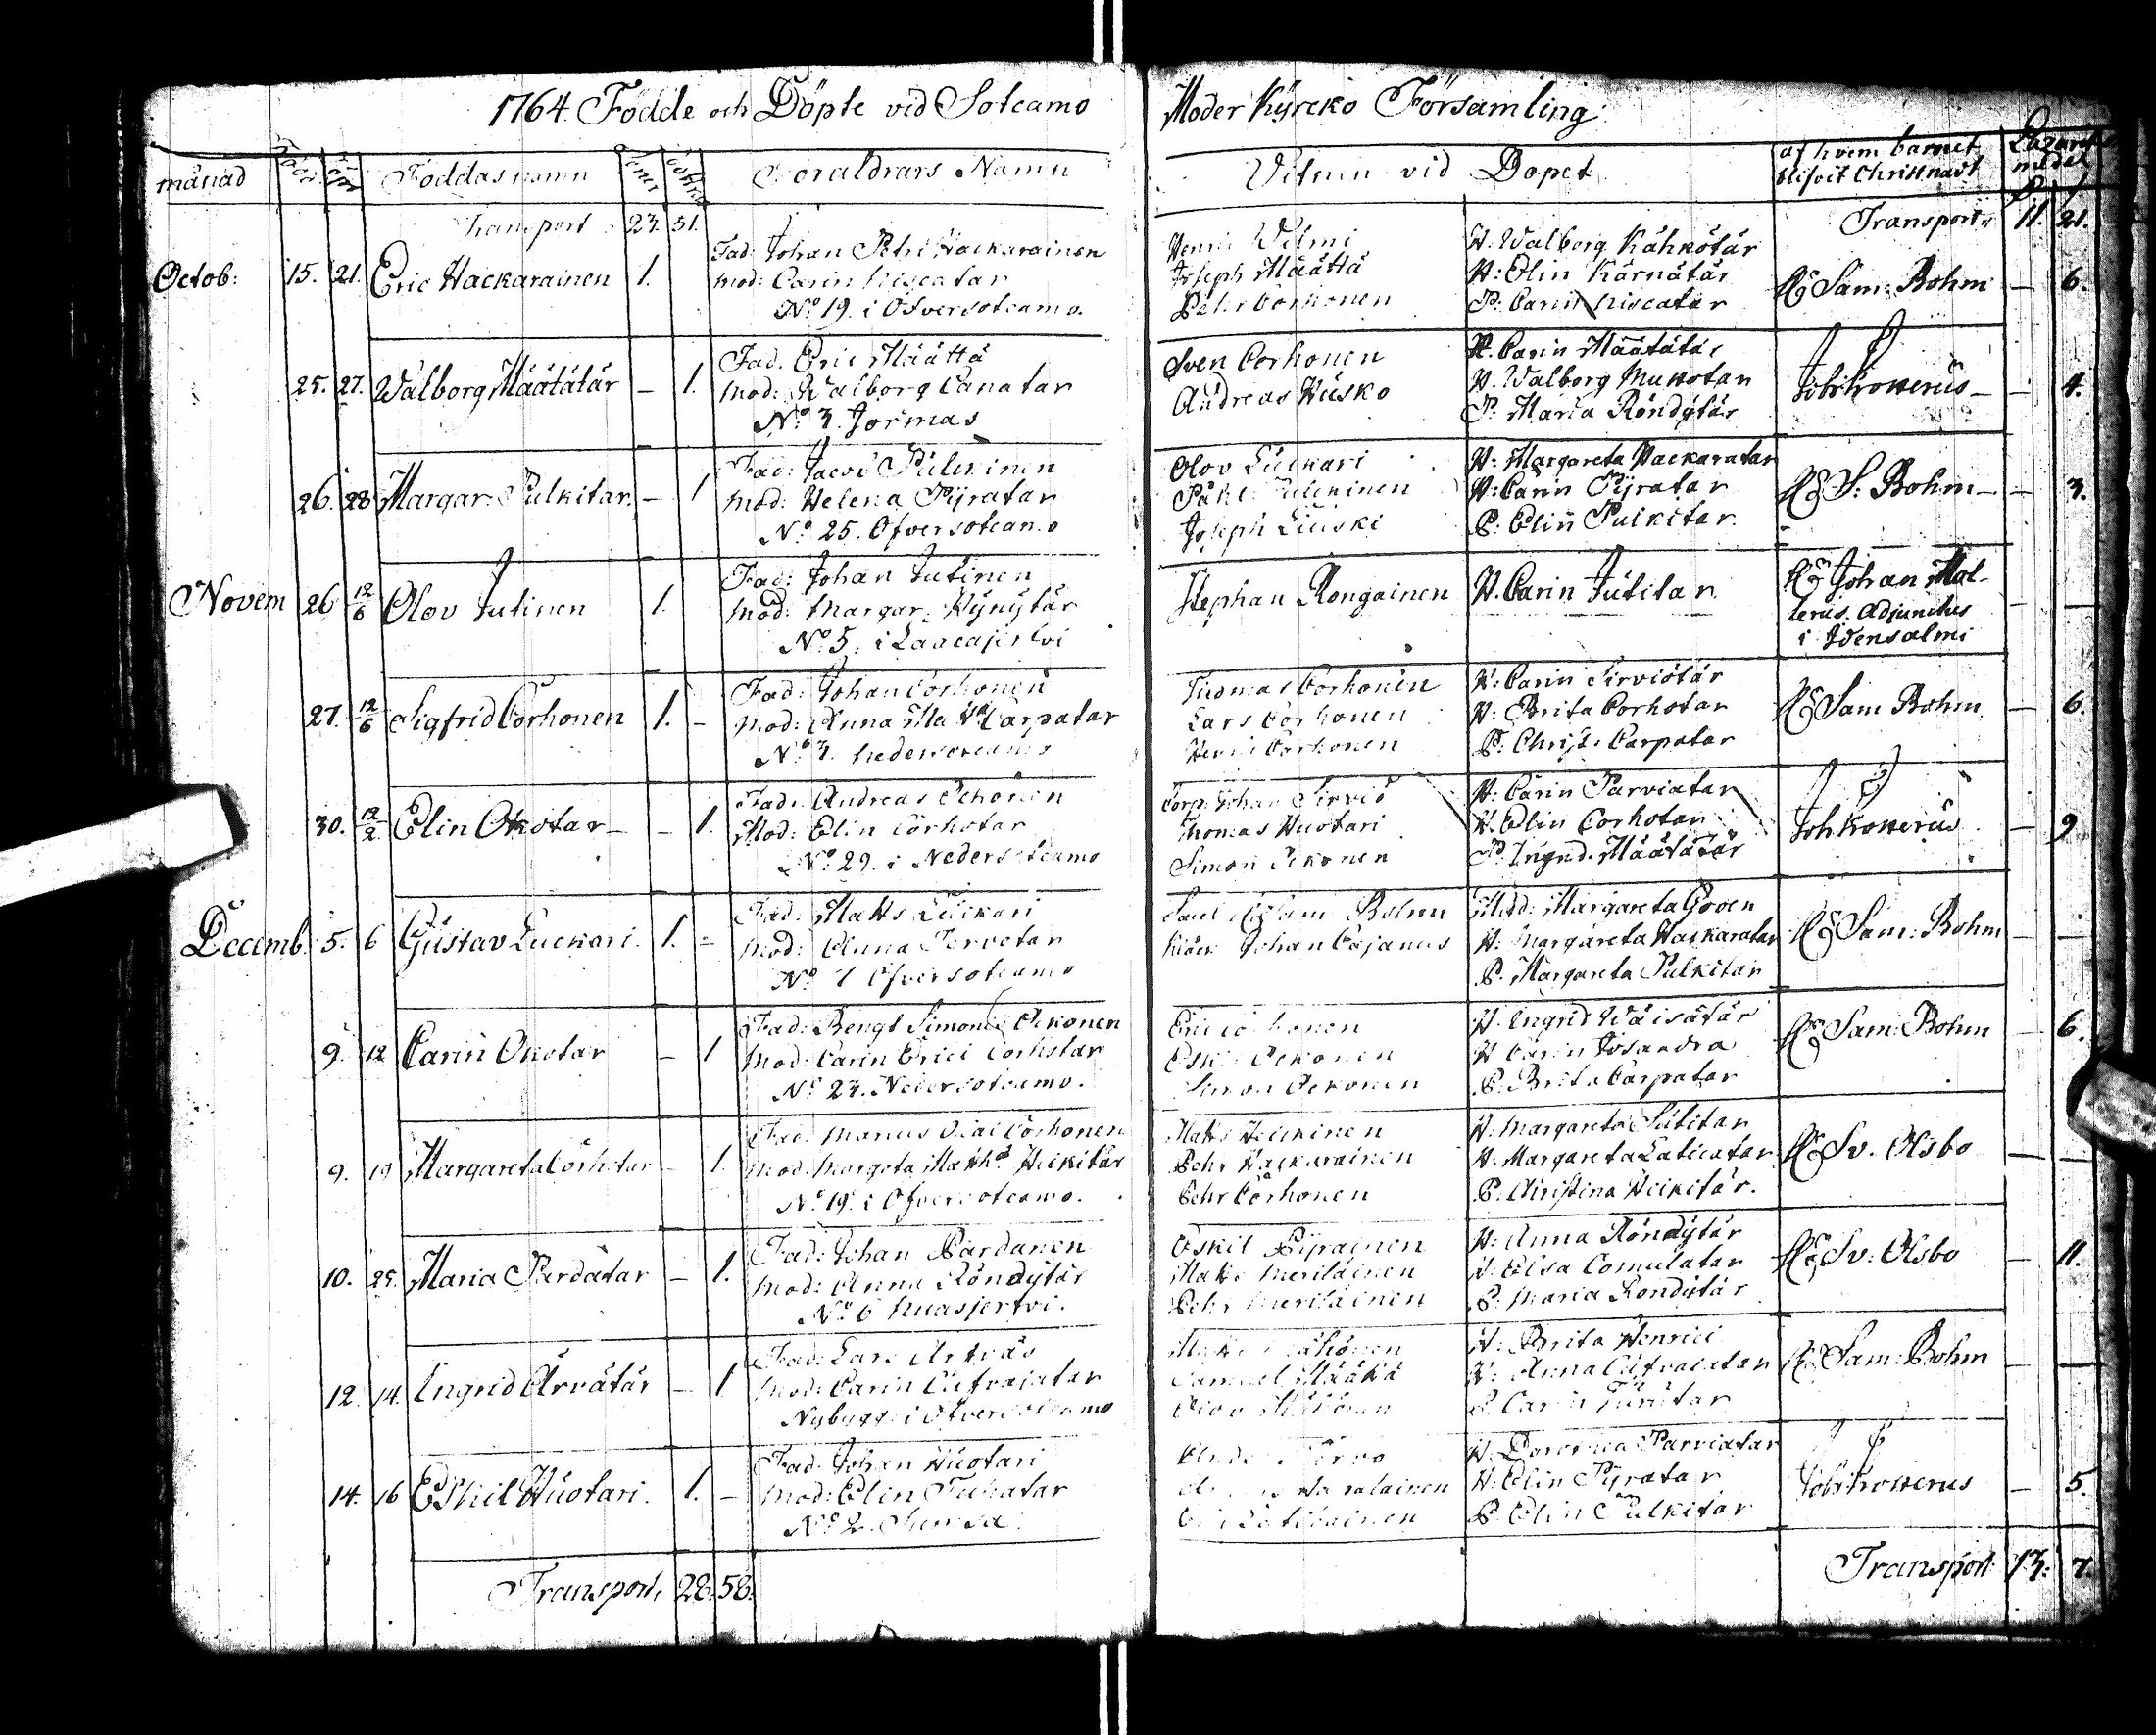 1764. Födde och Döpte vid Sotcamo Moder Kyrcko Församling
månad Föddas namn Foraldrars Namn Vitnen vid Dopet af hvem barnet blifvit Christnadt Lazarets medel
Transport 23. 51. Transport 11. 21.
Octob: 15. 21. Eric Hackarainen 1.
Fad: Johan Petri Hackarainen
mod: Carin Kiscatar
No 19. i Ofversotcamo.
Henric Vilmi
Joseph Määttä
Pehr Corhonen
H: Walborg Kähkötär
H: Elin Kärnätär
P: Carin Kiscatar
HE Sam: Bohm — 6.
25. 27. Walborg Määtätär — 1.
Fad. Eric Määttä
mod: Walborg Canatar
No 3. Jormas
Sven Corhonen
Andreas Husko
H. Carin Määtätär
H. Walborg Mukotar
P. Maria Röndytär
— 4.
26. 28 Margar: Pulkitar. — 1
Fad: Jacob Pulckinen
mod: Helena Pyratar
No 25. Ofversotcamo
Olov Luckari
Påhl Pulckinen
Joseph
H: Margareta Hackaratar
H: Carin Pyratar
P: Elin Pulkitar.
HE S: Bohm — — 3.
Novem 26 12/6 Olov Jutinen 1.
Fad: Johan Jutinen
mod: Margar: Hynytär
No 5. i Laacajerfvi
Stephan Rongainen
H. Carin Jutitar
HE Johan Mal-
lerus. Adjunctus
i Idensalmi
27. 12/6 Sigfrid Corhonen 1. —
Fad: Johan Corhonen
mod: Anna Carpatar
No 3. Nedersotcamo
Thomas Corhonen
Lars Corhonen
Henric Corhonen
H: Carin Sirviötär
H: Brita Corhotar
P: Christ: Carpatar
HE Sam Bohm — 6.
30. 12/2 Elin Okotar — — 1.
Fad: Andreas Ockonen
Mod: Elin Corhotar
No 29. i Nedersotcamo
Corp: Johan Sirviö
Thomas Huotari
Simon Ockonen
H: Carin Parviatar
H. Elin Corhotar
P. Ingrid. Määtätär
— 9
Decemb. 5. 6 Gustav Luckari. 1. –
Fad: Matts Luckari
mod: Anna Tervotar
No 7 Ofversotcamo
Sam Bohm
Klock Johan Cajanus
Mad: Margareta Groen
H: Margareta Hackaratar
P. Margareta Pulkitar
HE Sam: Bohm — —
9. 12 Carin Okotar — 1
Fad: Bengt Simonis Ockonen
mod: Carin Erici Corhotar
No 23. Nedersotcamo.
Eric Corhonen
Eskil Ockonen
Simon Ockonen
H. Ingrid Wäisätär
H Carin
P. Brita Carpatar
HE Sam: Bohm — 6.
9. 19 Margareta Corhotar — 1.
Fad: Marcus Olai Corhonen
mod: Margeta Heikitär
No 19. i Ofversotcamo.
Matts Heickinen
Pehr Hackarainen
Pehr Corhonen
H. Margareta
H. Margareta Laticatar
P. Christina Heikitär.
HE Sv. Olsbo — —
10. 25. Maria Pardatar — 1.
Fad: Johan Pardanen
mod: Anna Röndytär
No 6 Nuasjerfvi.
Eskil Pyrainen
Matts Meriläinen
Pehr Meriläinen
H: Anna Röndytär
H: Elsa Comulatar
P: Maria Rondytär
HE Sv: Olsbo — 11.
12. 14. Ingrid Arvätär — 1
Fad: Lars
mod: Carin
Nybygge i Ofversotcamo
Samuel
Olov
H: Brita Henrici
H: Anna
P. Carin
HE Sam: Bohm — —
14. 16 Eskil Huotari. 1. —
Fad: Johan Huotari
mod: Elin Tuhatar
No 2.
H. Dorothea Parviatar
H: Elin Pyratar
P. Elin Pulkitar
— 5.
Transport, 28. 58. Transport 13. 7.